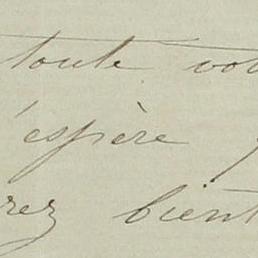 toute vot
'espère
rez bient